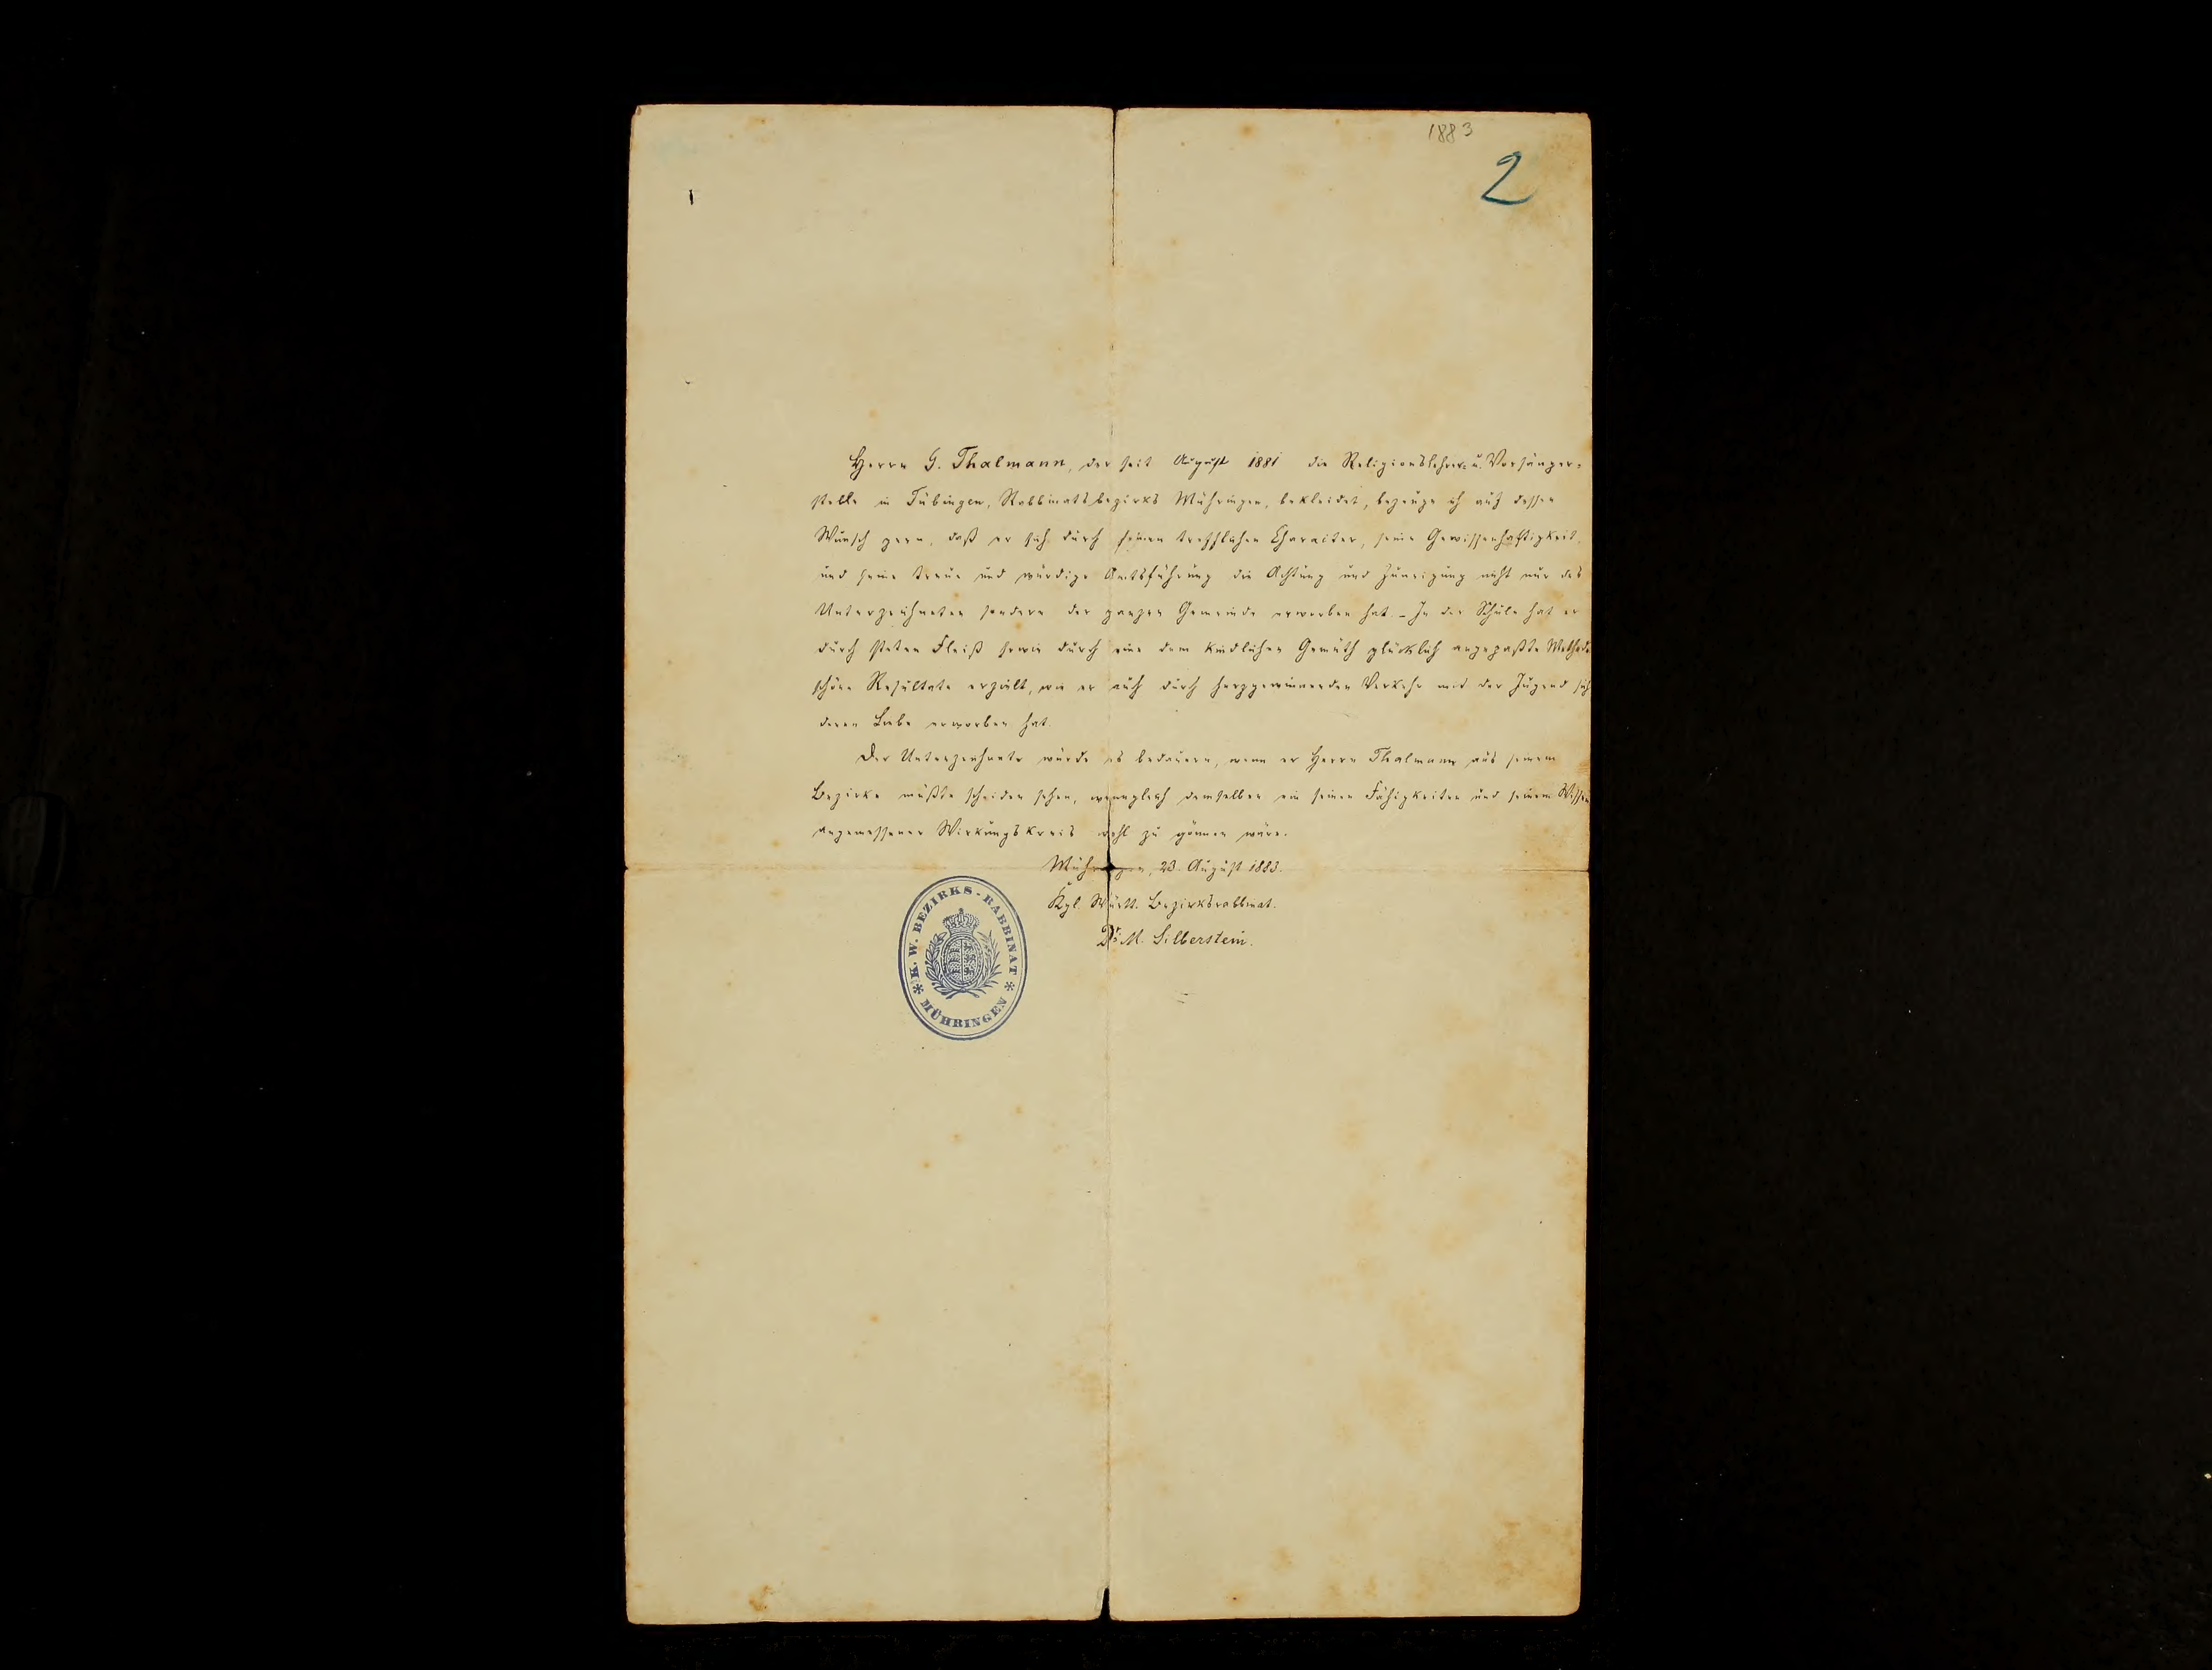 1883
2
Herrn G. Thalmann, der seit August 1881 die Religionslehrer- u. Vorsänger-
stelle in Tübingen, Rabbinatsbezirks Mühringen, bekleidet, bezeuge ich auf dessen
Wunsch gern, daß er sich durch seinen trefflichen Character, seine Gewissenhaftigkeit
und seine treue und würdige Amtsführung die Achtung und Zuneigung nicht nur des
Unterzeichneten sondern der ganzen Gemeinde erworben hat. – In der Schule hat er
durch steten Fleiß sowie durch eine dem kindlichen Gemüth glücklich angepaßte Methode
schöne Resultate erzielt, wie er auch durch herzgewinnenden Verkehr mit der Jugend sich
deren Liebe erworben hat.
Der Unterzeichnete würde es bedauern, wenn er Herrn Thalmann aus seinem
Bezirke müßte scheiden sehen, wenngleich demselben ein seinen Fähigkeiten und seinem Wissen
angemessener Wirkungskreis wohl zu gönnen wäre.
Mühringen, 23. August 1883.
Kgl. Württ. Bezirksrabbinat.
Dr. M. Silberstein.
K. W. BEZIRKS-RABBINAT
MÜHRINGEN